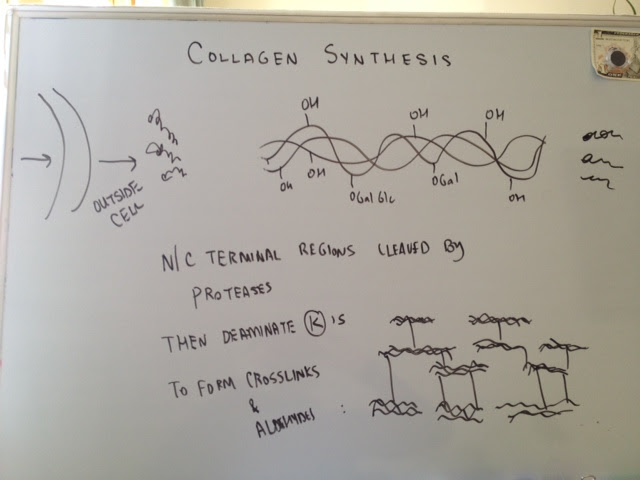 COLLAGEN SYNTHESIS
OUTSIDE
CELL
OH
OH
OH
OH
OH
OGal Glc
OGal
OH
N/C TERMINAL REGIONS CLEAVED BY
PROTEASES
THEN DEAMINATE K is
TO FORM CROSSLINKS
&
ALDEHYDES :